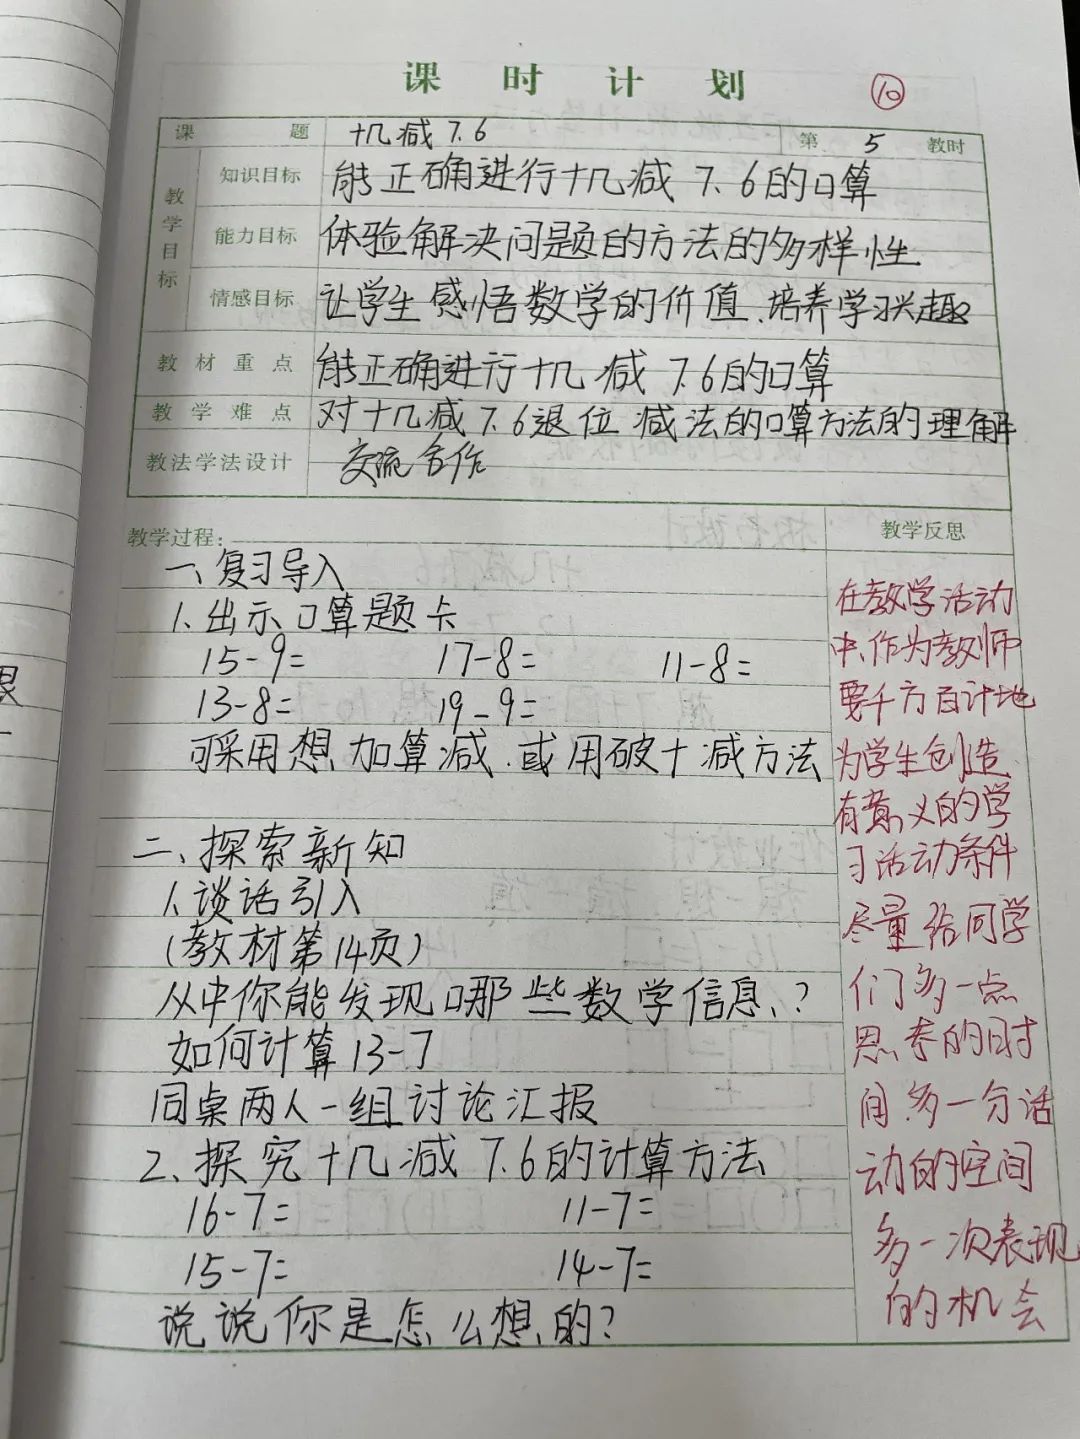 课时计划
⑩
课题 十几减7.6 第5教时
教学目标
知识目标 能正确进行十几减7.6的口算
能力目标 体验解决问题的方法的多样性
情感目标 让学生感悟数学的价值、培养学习兴趣
教材重点 能正确进行十几减7.6的口算
教学难点 对十几减7.6退位减法的口算方法的理解
教法学法设计 交流合作
教学过程:
一、复习导入
1.出示口算题卡
15-9= 17-8= 11-8=
13-8= 19-9=
可采用想加算减.或用破十减方法
二、探索新知
1.谈话引入
(教材第14页)
从中你能发现哪些数学信息、?
如何计算13-7
同桌两人一组讨论汇报
2、探究十几减7.6的计算方法
16-7= 11-7=
15-7= 14-7=
说说你是怎么想的?
教学反思
在教学活动
中、作为教师
要千方百计地
为学生创造
有意义的学
习活动条件
尽量给同学
们多一点
思考的时
间多一分话
动的空间
多一次表现
的机会